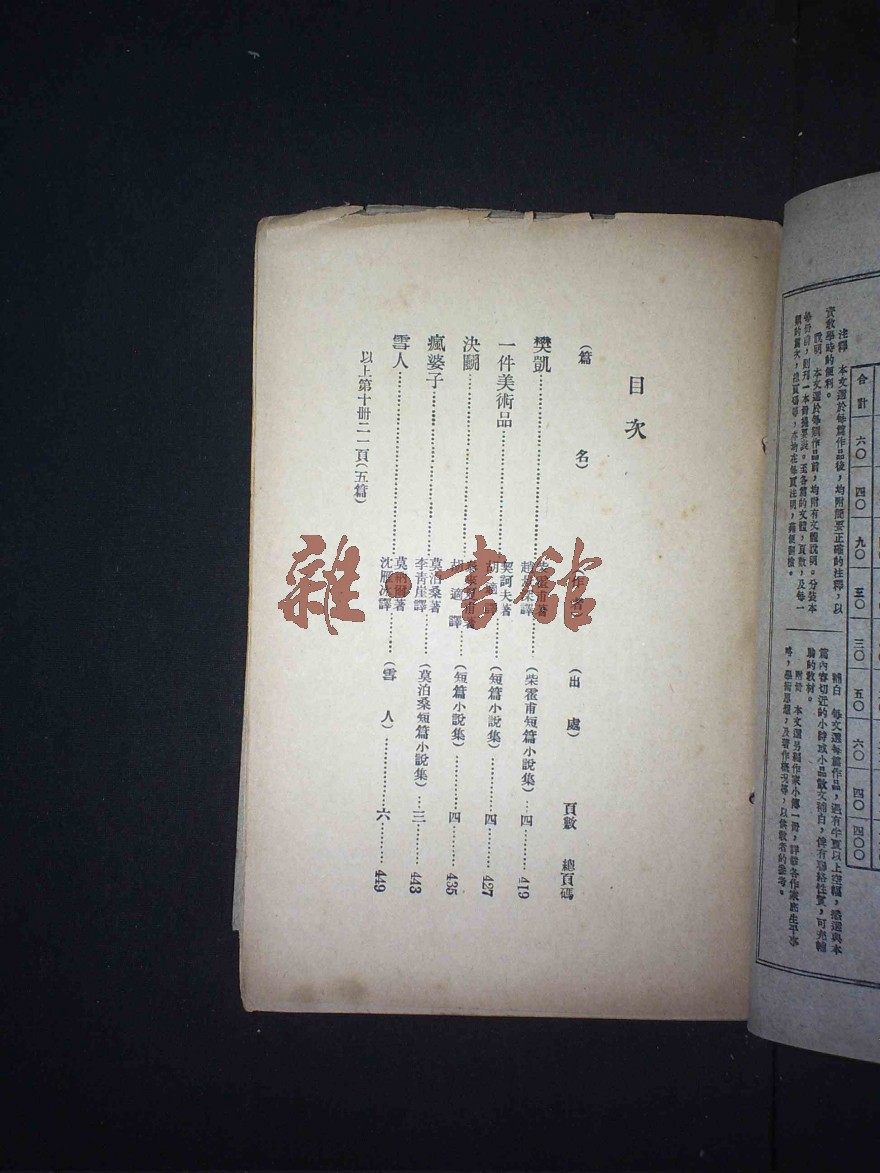 目次
(篇名) (作者) (出處) 頁數 總頁碼
樊凱 柴霍甫著 趙景深譯 (柴霍甫短篇小說集) 四 419
一件美術品 契訶夫著 胡適譯 (短篇小說集) 四 427
決鬭 泰來夏甫著 胡適譯 (短篇小說集) 四 435
瘋婆子 莫泊桑著 李青崖譯 (莫泊桑短篇小說集) 三 443
雪人 莫納爾著 沈雁冰譯 (雪人) 六 449
以上第十冊二一頁(五篇)
合計 六〇 四〇 九〇 三〇 三〇 五〇 六〇 四〇 四〇〇
注釋 本文選於每篇作品後,均附簡要正確的注釋,以
資教學時的便利。
說明 本文選於每篇作品前,均附有文體說明。分裝本
每冊前,則列一本冊提要表。至各篇的文體,頁數,及每一
補白 每文選每篇作品,遇有半頁以上空幅,悉選與本
篇內容切近的小詩或小品散文補白,俾有聯絡性質,可充輔
助的教材。
附於 本文選另編作家小傳一冊,詳敘各作家底生平事
略,學術思想,及著作概況等,以供教者的參考。
雜·書館